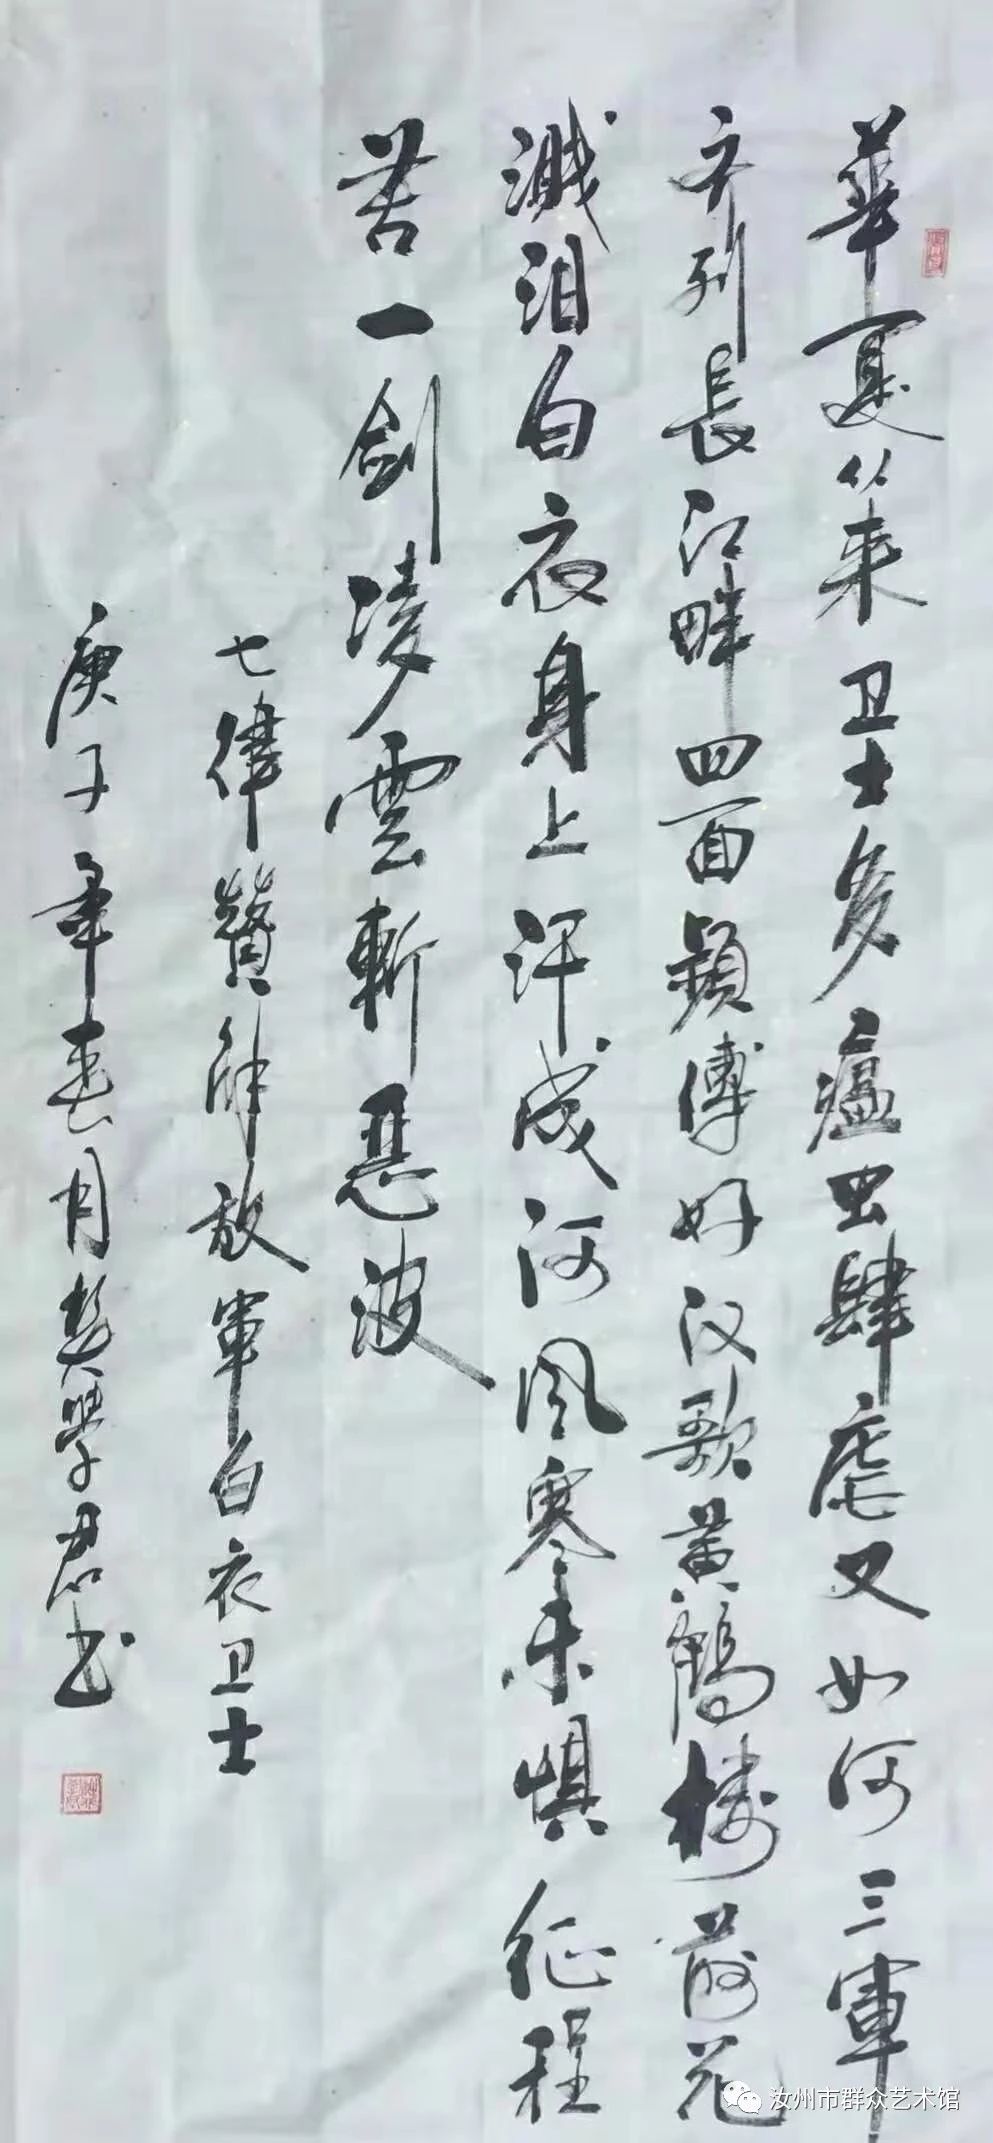 華夏从来卫士多瘟虫肆虐又如何三軍
齐列長江畔四面頻傳好汉歌黄鶴楼前花
溅泪白衣身上汗成河风寒未惧征程
苦一劍凌雲斬惡波
七律贊解放軍白衣卫士
庚子年春月樊學君书
汝州市群众艺术馆